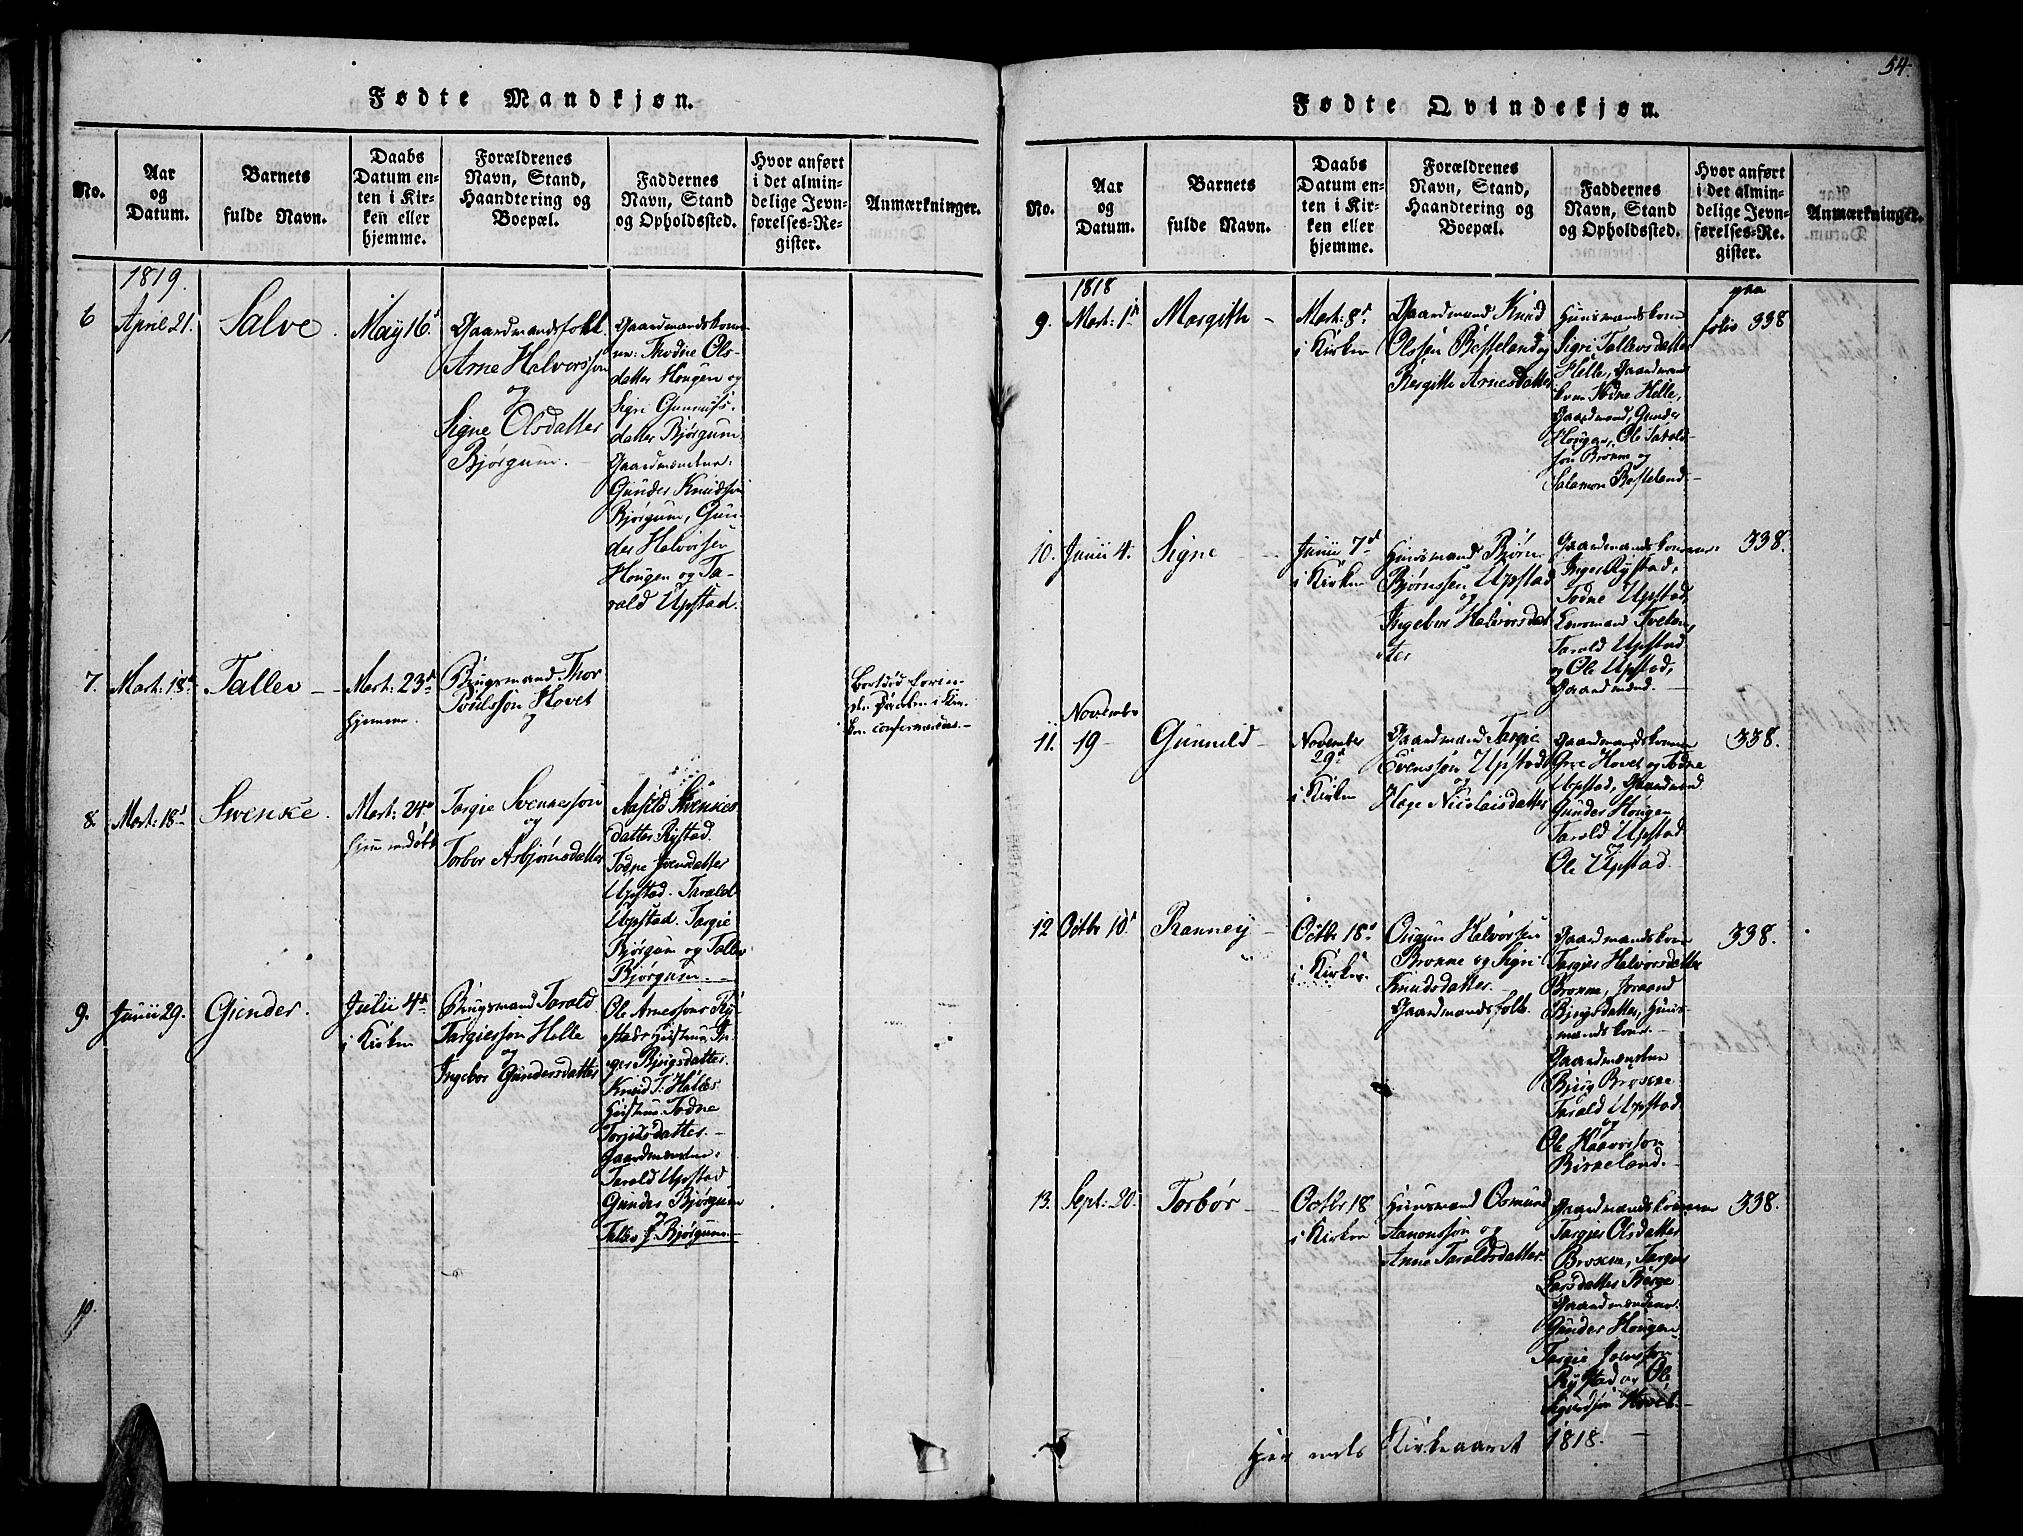 Fødte Mandkjøn.
No.
Aar
og
Datum.
Barnets
fulde Navn.
Daabs
Datum en-
ten i Kir-
ken eller
hjemme.
Forældrenes
Navn, Stand,
Haandtering og
Boepæl.
Faddernes
Navn, Stand
og Opholdssted.
Hvor anført
i det almin-
delige Jevn-
førelses-Re-
gister.
Anmærkninger.
1819.
6
April 21.
Salve.
May 16d
Gaardmandsfolk
Arne Halvorssøn
og
Signe Olsdatter
Bjørgum.
Gaardmandskone
Thodne Ols-
datter Hougen og
Sigri Gunnufs-
datter Bjørgum
Gaardmændene:
Gunder Knudsøn
Bjørgum, Gun-
der Halvorsen
Hougen og Ta-
rald Upstad.
7.
Mart: 18d
Tallev
Mart: 23d
hjemme.
Bygsmand Thor
Poulssøn Hovet
og
Bortdød foren-
den Daaben i Kir-
ken confirmeres.
8.
Mart: 18d
Swenke.
Mart: 24d
hjemmedøbt
Targie Svennessøn
og
Torbor Asbjørnsdatter
Aasild Swenkes
datter Rystad.
Todne Jvensdatter
Upstad. Tarald
Upstad. Targie
Bjørgum og Tallev
Bjørgum.
9.
Junii 29.
Gunder.
Julii 4d
i Kirken
Bygsmand Tarald
Targiessøn Helle
og
Ingebor Gundersdatter
Ole Arnessøns Ry-
stads Hustrue In-
ger Bjugsdatter.
Knud T: Helles
Hustrue Todne
Torjusdatter.
Gaardmændene:
Tarald Upstad
Gunder Bjørgum
og
Tallev J. Bjørgum.
10.
54.
Fødte Qvindekjøn.
No.
Aar
og
Datum.
Barnets
fulde Navn.
Daabs
Datum en-
ten i Kir-
ken eller
hjemme.
Forældrenes
Navn, Stand,
Haandtering og
Boepæl.
Faddernes
Navn, Stand
og Opholdssted.
Hvor anført
i det almin-
delige Jevn-
førelses-Re-
gister.
Anmærkninger.
1818
9.
Mart: 1ste
Margith
Mart: 8d
i Kirken
Gaardmand Knud
Olssøn Besteland og
Bergith Arnesdatter
Huusmandskone
Sigri Tallevsdatter
Helle, Gaardmands
kone Todne Helle,
Gaardmænd, Gunder
Hougen, Ole Tarald-
søn Brokne og
Salamon Besteland.
paa
folio 338
10.
Junii 4.
Signe
Junii 7d
i Kirken
Huusmand Bjørn
Bjørnssøn Upstad
og
Ingebor Halvorsdat
ter
Gaardmandskonerne:
Inger Rystad,
Todne Upstad,
Lensmand Tveten,
Tarald Upstad
og Ole Upstad,
Gaardmænd.
338.
11.
Novembr
19
Gunnild
November
29d
i Kirken
Gaardmand Targie
Evenssøn Upstad
og
Hage Nicolaisdatter
Gaardmandskonerne
Groe Hovet og Todne
Upstad, Gaardmænd
Gunder Hougen
Tarald Upstad
og
Ole Upstad.
338.
12
Octbr 10d
Ranney
Octbr 18d
i Kirken
Ougun Halvorsen
Brokne og Sigri
Knudsdatter.
Gaardmandsfolk.
Gaardmandskone
Targier Halvorsdatter
Brokne, Joraand
Bjugsdatter, Huus-
mandskone.
Gaardmændene
Bjug Brokne
Tarald Upstad
og
Ole Haavorsson
Birkeland.
338.
13.
Sept: 20.
Torbør
Octbr 18
i Kirken
Huusmand Osmund
Aanonssøn og
Anne Taraldsdatter
Gaardmandskonerne
Targier Olsdatter
Brokne, Targier
Larsdatter Berge
Gaardmændene
Gunder Hougen
Targie Jolnssøn
Rystad og Ole
Sigurdsøn Hovet.
338.
Her ends Kirkeaaret 1818.